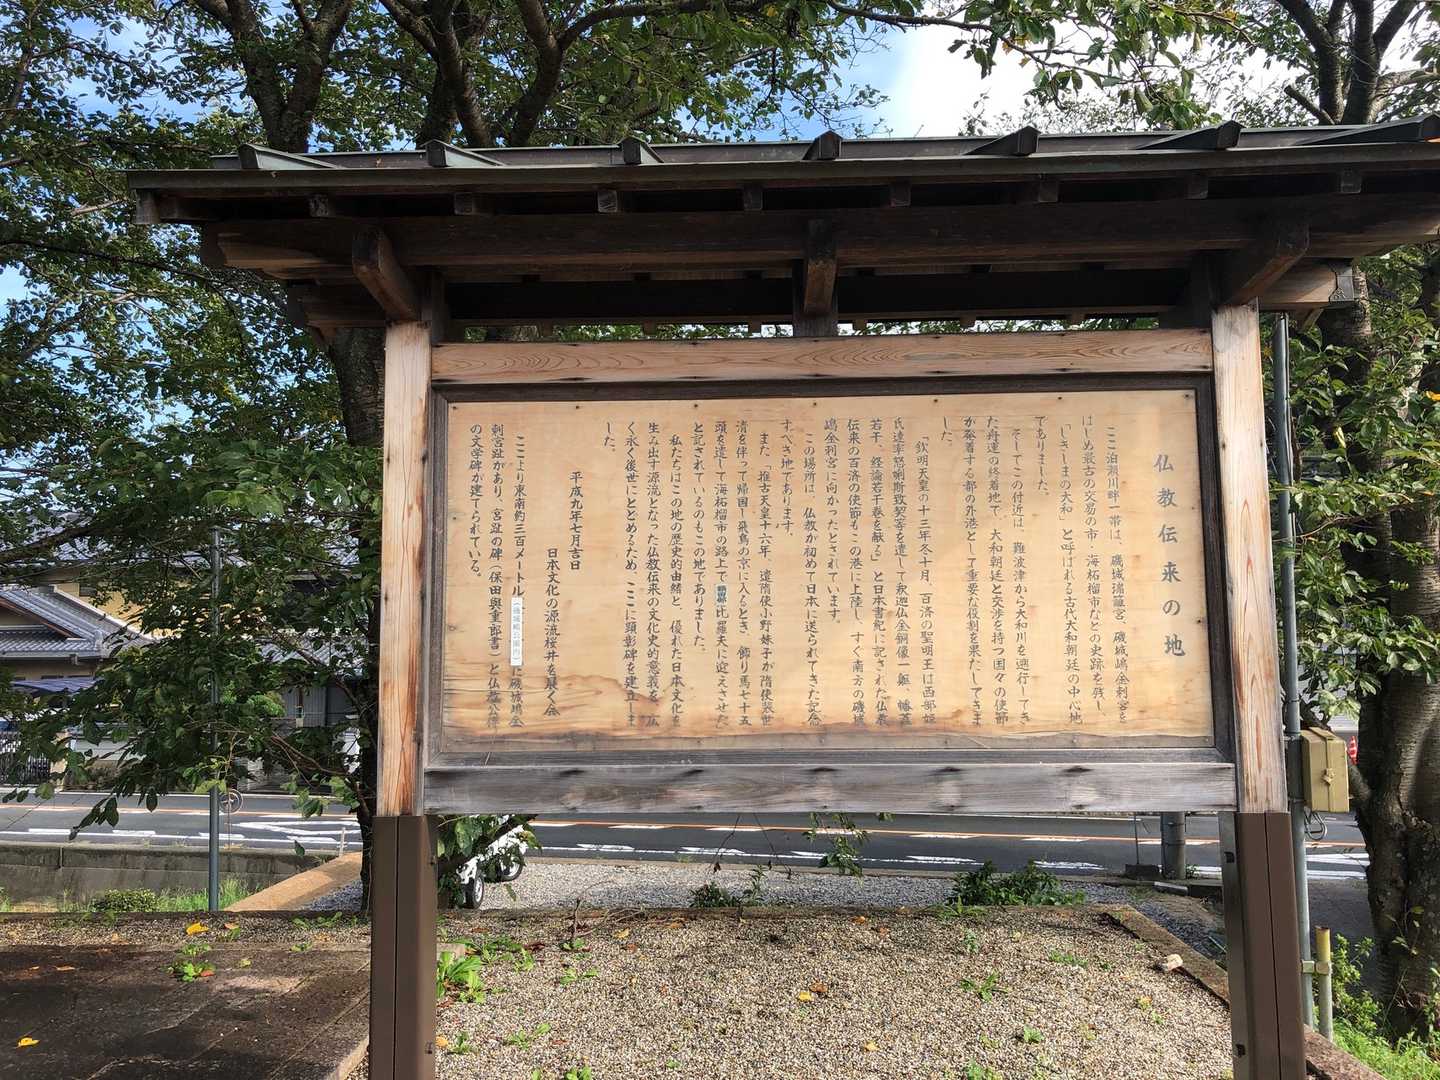 仏教伝来の地
ここ泊瀬川畔一帯は、磯城瑞籬宮、磯城嶋金刺宮を
はじめ最古の交易の市・海柘榴市などの史跡を残し、
「しきしまの大和」と呼ばれる古代大和朝廷の中心地
でありました。
そしてこの付近は、難波津から大和川を遡行してき
た舟運の終着地で、大和朝廷と交渉を持つ国々の使節
が発着する都の外港として重要な役割を果たしてきま
した。
「欽明天皇の十三年冬十月、百済の聖明王は西部姫
氏達率怒唎斯致契等を遣して釈迦仏金銅像一躯、幡蓋
若干、経論若干巻を献る」と日本書紀に記された仏教
伝来の百済の使節もこの港に上陸し、すぐ南方の磯城
嶋金刺宮に向かったとされています。
この場所は、仏教が初めて日本に送られてきた記念
すべき地であります。
また、「推古天皇十六年、遣隋使小野妹子が隋使裴世
清を伴って帰国し、飛鳥の京に入るとき、飾り馬七十五
頭を遣して海柘榴市の路上で額田部比羅夫に迎えさせた」
と記されているのもこの地でありました。
私たちはこの地の歴史的由緒と、優れた日本文化を
生み出す源流となった仏教伝来の文化史的意義を、広
く永く後世にとどめるため、ここに顕彰碑を建立しま
した。
平成九年七月吉日
日本文化の源流桜井を展く会
ここより東南約三百メートル(磯城嶋公園内)に磯城嶋金
刺宮趾があり、宮趾の碑(保田與重郎書)と仏教公伝
の文学碑が建てられている。